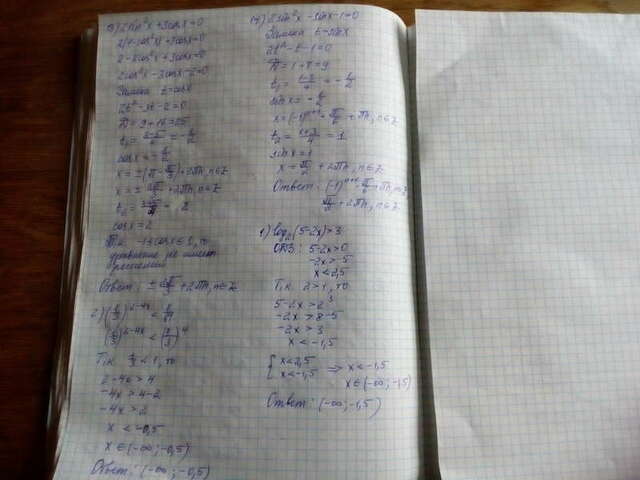 2sin²x+3cosx=0
2(1-cos²x)+3cosx=0
2-2cos²x+3cosx=0
2cos²x-3cosx-2=0
Замена t=cosx
2t²-3t-2=0
D=9+16=25
t₁=(3-5)/4=-1/2
cosx=-1/2
x=±(π-π/3)+2πn, n∈Z
x=±2π/3+2πn, n∈Z
t₂=(3+5)/4=2
cosx=2
Т.к. -1≤cosx≤1, то
уравнение не имеет
решений
Ответ: ±2π/3+2πn, n∈Z
2) (1/3)^(2-4x)<1/81
(1/3)^(2-4x)<(1/3)^4
Т.к. 1/3<1, то
2-4x>4
-4x>4-2
-4x>2
x<-0,5
x∈(-∞;-0,5)
Ответ: (-∞;-0,5)
2sin²x-sinx-1=0
Замена t=sinx
2t²-t-1=0
D=1+8=9
t₁=(1-3)/4=-1/2
sinx=-1/2
x=(-1)^(n+1)·π/6+πn, n∈Z
t₂=(1+3)/4=1
sinx=1
x=π/2+2πn, n∈Z
Ответ: (-1)^(n+1)·π/6+πn, n∈Z
π/2+2πn, n∈Z
1) log₂(5-2x)>3
ОДЗ: 5-2x>0
-2x>-5
x<2,5
Т.к. 2>1, то
5-2x>2³
-2x>8-5
-2x>3
x<-1,5
{x<2,5
x<-1,5 ⇒ x<-1,5
x∈(-∞;-1,5)
Ответ: (-∞;-1,5)